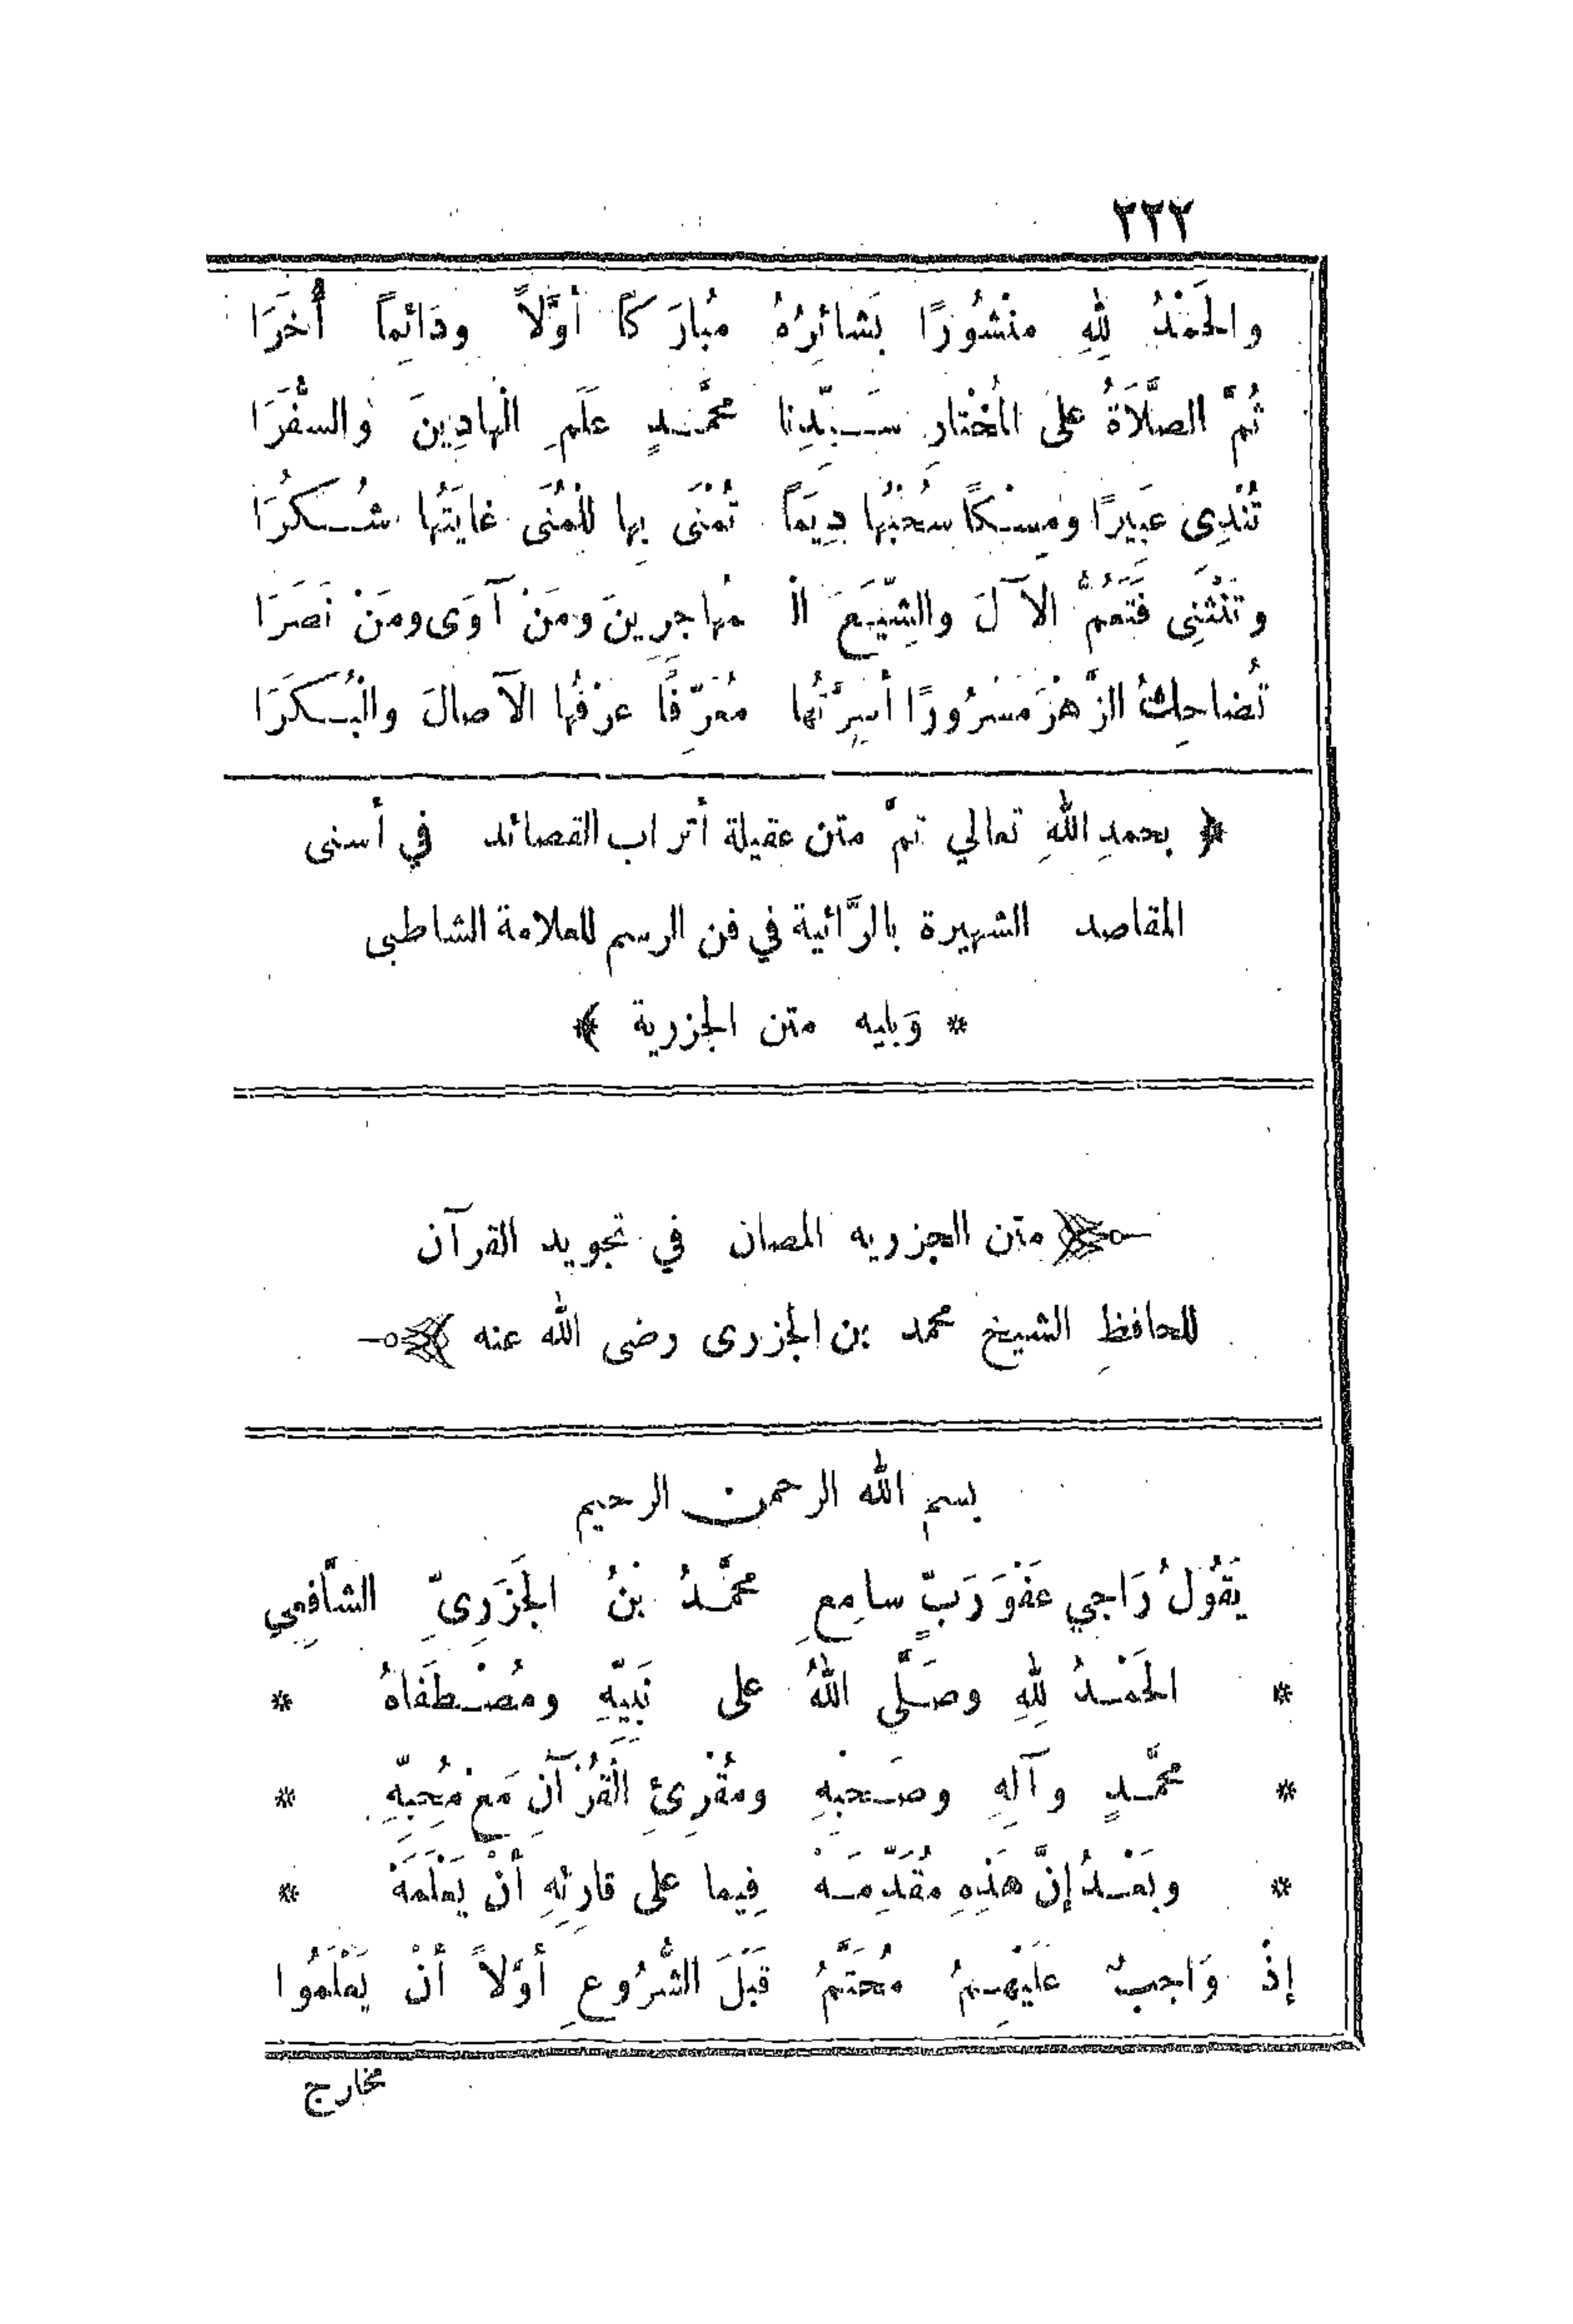 ٢٢٢
والحَمْدُ لِلهِ منْشُورًا بَشائِرُهُ مُبارَكًا أوَّلاً ودَائِماً أُخَرَا
ثُمَّ الصَّلاَةُ على المُخْتارِ سَيِّدِنا محمَّدٍ عَلَمِ الْهادِينَ والسُّفَرَا
تُنْدِى عَبِيرًا ومِسْكًا سُحْبُها دِيَمًا تُمْنَى بِها لِلْمُنَى غايَتُها شُكُرَا
وتَنْثَنِى فَتَعُمُّ الآلَ والشِّيَعَ الْ مُهاجِرِينَ ومَنْ آوَى ومَنْ نَصَرَا
تُضاحِكُ الزَّهْرَ مَسْرُورًا أَسِرَّتُها مُعَرِّفًا عَرْفُها الآصالَ والْبُكَرَا
﴿ بحمدِ اللهِ تعالي تمَّ متن عقيلة أتراب القصائد في أسنى
المقاصد الشهيرة بالرَّائية في فن الرسم للعلامة الشاطبى
* وَيليه متن الجزرية ﴾
متن الجزريه المصان في تجويد القرآن
للحافظِ الشيخ محمد بن الجزرى رضى الله عنه
بسمِ الله الرحمن الرحيم
يَقُولُ رَاجِي عَفْوِ رَبٍّ سامِعِ محمَّدُ بْنُ الجَزَرِىِّ الشَّافِعِي
* الحَمْدُ لِلهِ وصَلَّي اللهُ على نَبِيِّهِ ومُصْطَفَاهُ *
* محمَّدٍ وآلِهِ وصَحْبِهِ ومُقْرِئِ الْقُرْآنِ مَعْ مُحِبِّهِ *
* وبَعْدُ إنَّ هَذِهِ مُقَدِّمَهْ فِيما على قارِئِهِ أنْ يَعْلَمَهْ *
إذْ وَاجِبٌ عَلَيْهِمُ مُحَتَّمُ قَبْلَ الشُّرُوعِ أوَّلاً أنْ يَعْلَمُوا
مخارج